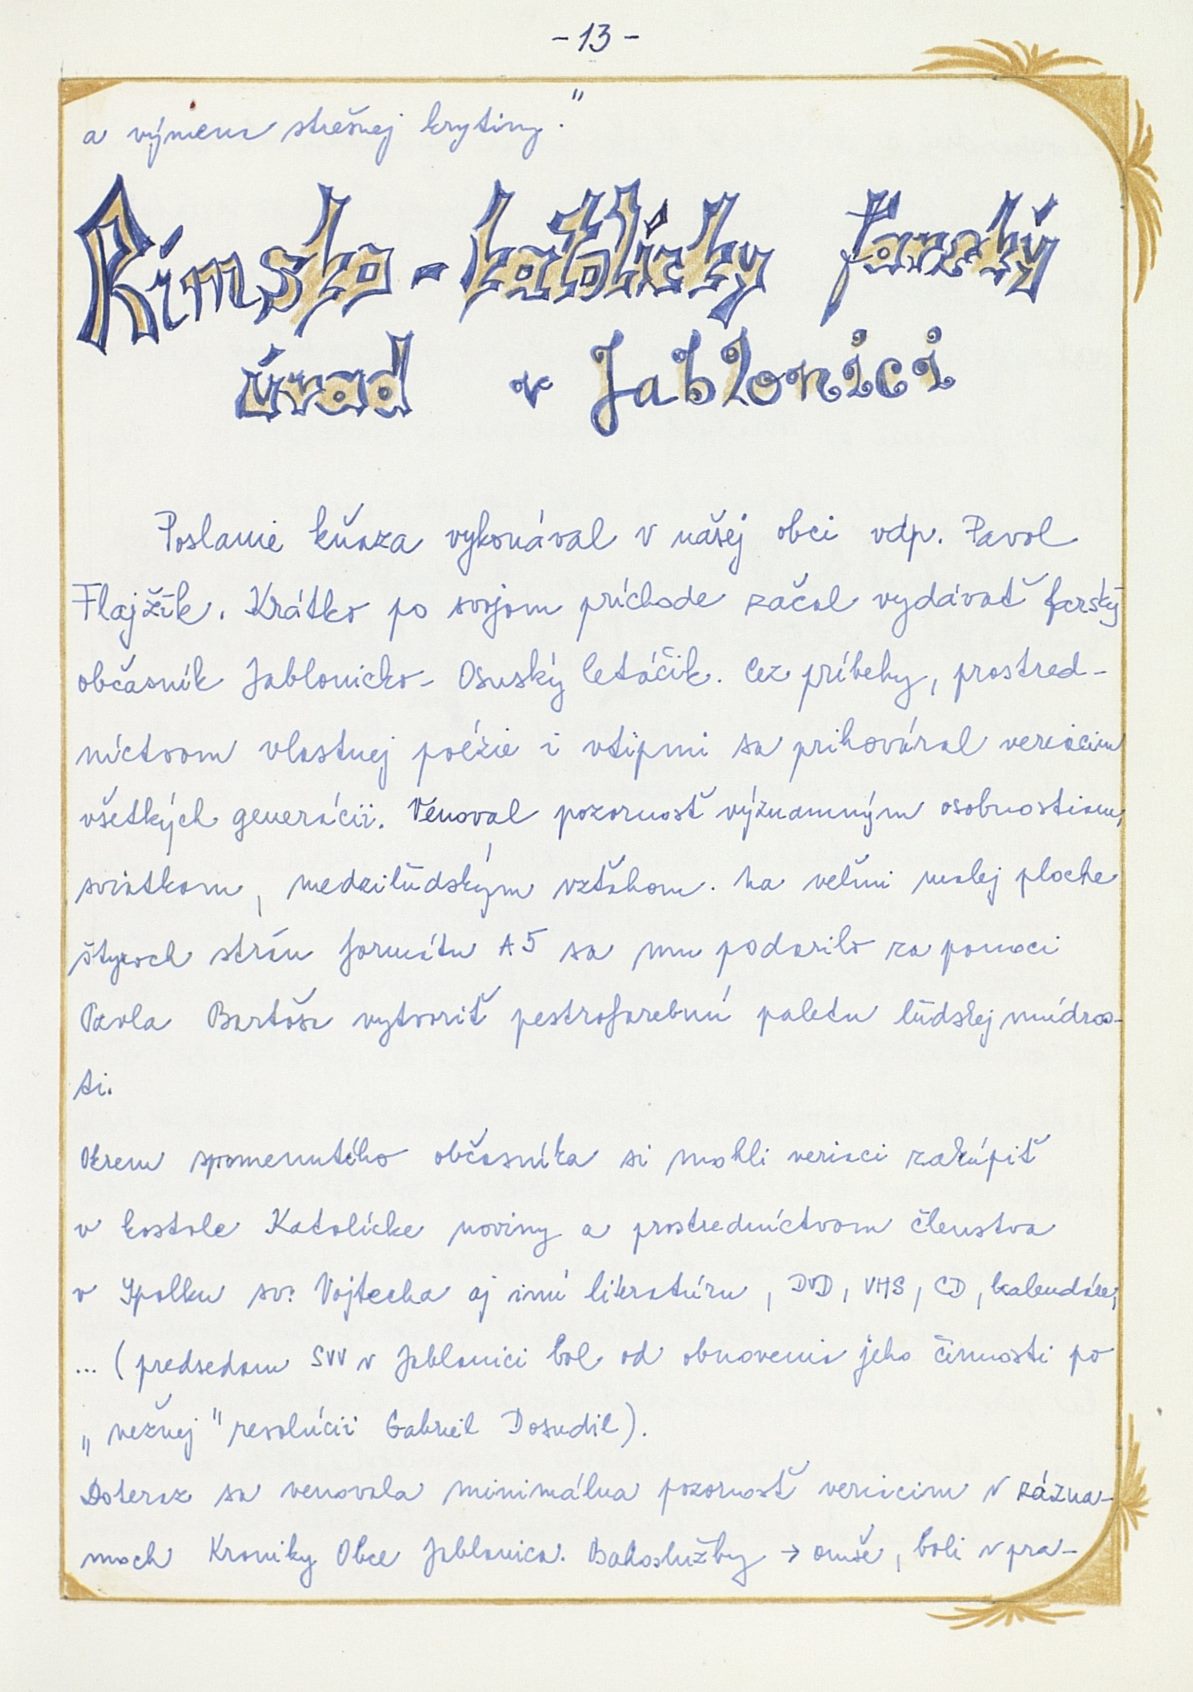 - 13 -
a výmena strešnej krytiny."
Rímsko-katolícky farský
úrad v Jablonici
Poslanie kňaza vykonával v našej obci vdp. Pavol
Flajžík. Krátko po svojom príchode začal vydávať farský
občasník Jablonicko - Osuský letáčik. Cez príbehy, prostred-
níctvom vlastnej poézie i vtipmi sa prihováral veriacim
všetkých generácií. Venoval pozornosť významným osobnostiam,
sviatkom, medziľudským vzťahom. Na veľmi malej ploche
štyroch strán formátu A5 sa mu podarilo za pomoci
Pavla Bartoša vytvoriť pestrofarebnú paletu ľudskej múdros-
ti.
Okrem spomenutého občasníka si mohli veriaci zakúpiť
v kostole Katolícke noviny a prostredníctvom členstva
v Spolku sv. Vojtecha aj inú literatúru, DVD, VHS, CD, kalendáre,
... (predsedom SVV v Jablonici bol od obnovenia jeho činnosti po
„nežnej" revolúcii Gabriel Dosudil).
Doteraz sa venovala minimálna pozornosť veriacim v zázna-
moch Kroniky Obce Jablonica. Bohoslužby → omše, boli v pra-